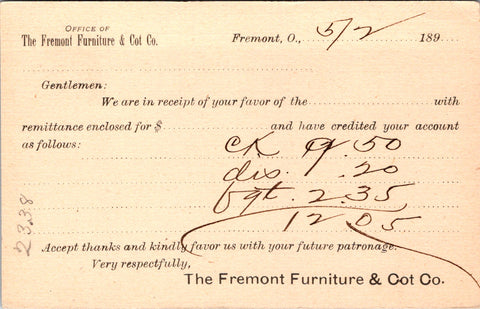 OFFICE OF
The Fremont Furniture & Cot Co.
Fremont, O., 5/2 189
Gentlemen:
We are in receipt of your favor of the with
remittance enclosed for $ and have credited your account
as follows: ck 9.50
dis. .20
fgt. 2.35
12 05
2338
Accept thanks and kindly favor us with your future patronage.
Very respectfully,
The Fremont Furniture & Cot Co.